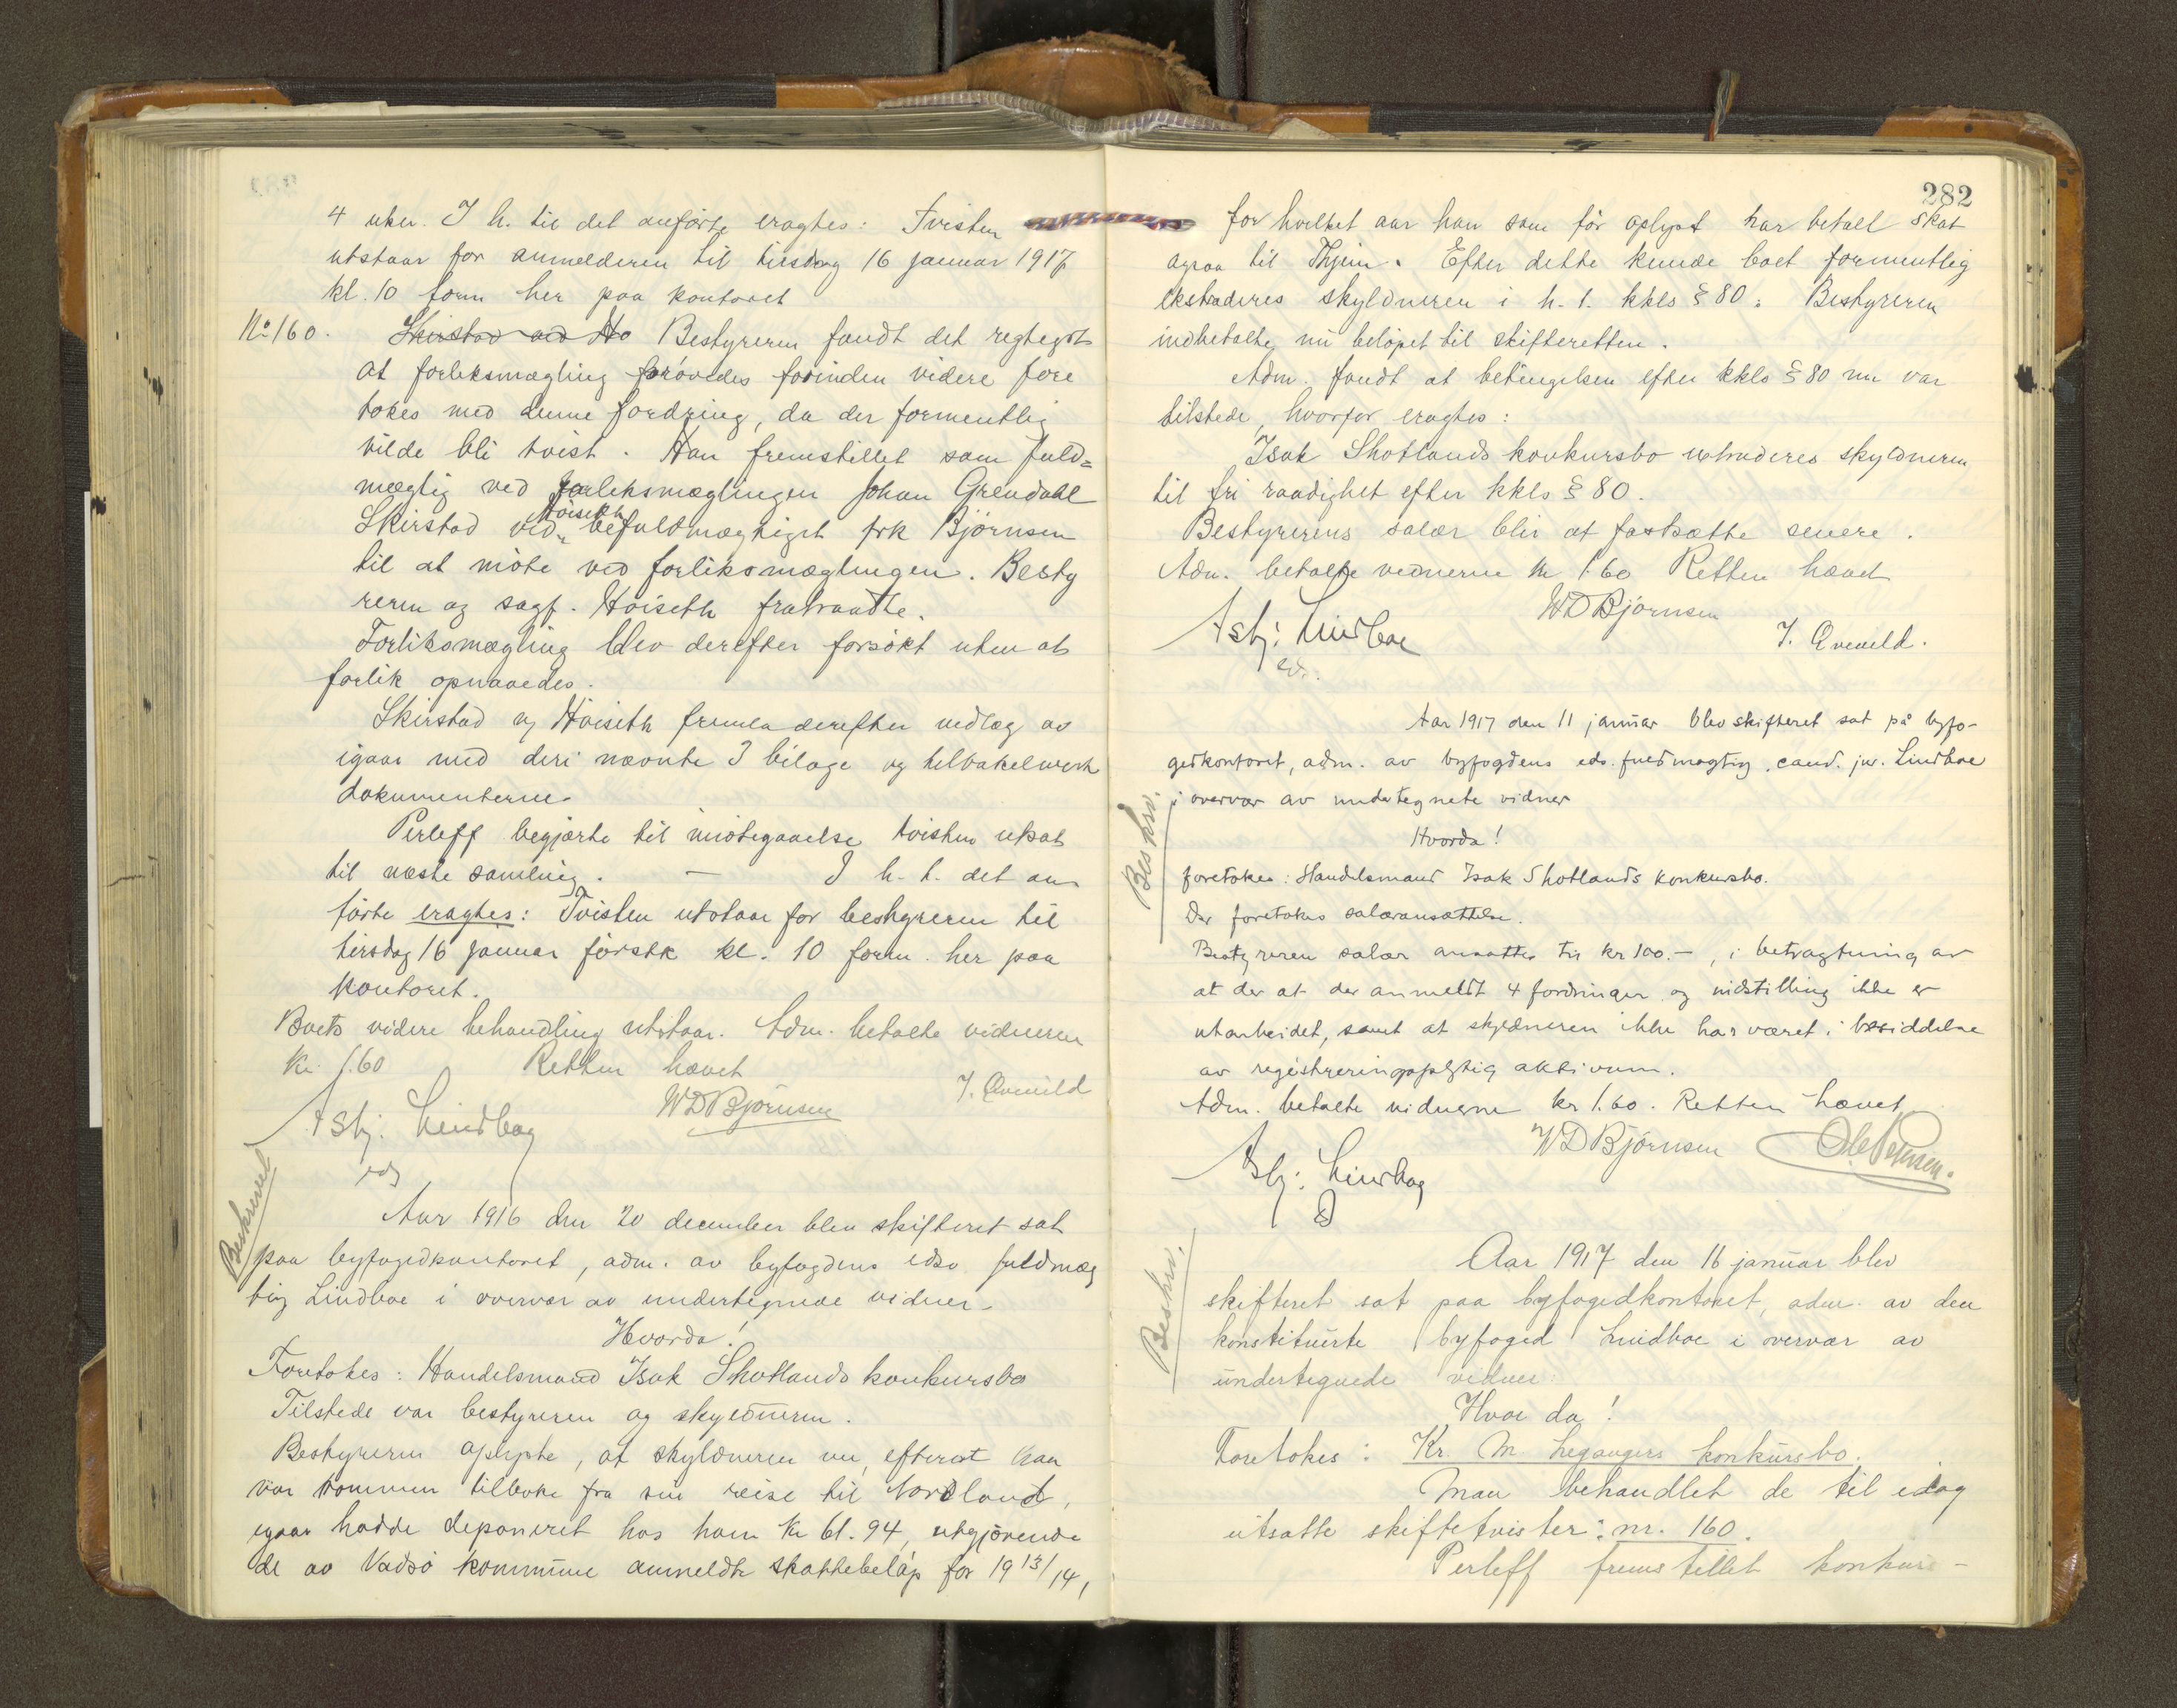 4 uker. I h. til det anførte eragtes: Tvisten
utstaar for anmelderen til tirsdag 16 januar 1917
kl. 10 form her paa kontoret
No 160. Skirstad ved Hø Bestyreren fandt det regtegst
at forliksmægling prövedes forinden videre fore
tokes med denne fordring, da der formentlig
vilde bli tvist. Han fremstillet som fuld=
mægtig ved forliksmæglingen Johan Grendahl
Skirstad ved Höiseth befuldmægtiget frk Björnsen
til at möte ved forliksmæglingen. Besty
reren og sagf. Höiseth fratraadte.
Forliksmægling blev derefter forsökt uten at
forlik opnaaedes.
Skirstad og Höiseth fremla derefter indlæg av
igaar med deri nævnte 3 bilage og tilbakelverte
dokumenterne.
Perleff begjærte til imötegaaelse tvisten utsat
til næste samling. — I h. t. det an
förte eragtes: Tvisten utstaar for bestyreren til
tirsdag 16 januar förstk kl. 10 form. her paa
kontoret.
Boets videre behandling utstaar. Adm. betalte vidnerne
kr. 1.60 Retten hævet
Asbj. Lindboe WD Björnsen J. Qvenild
eds
Beskrevet
Aar 1916 den 20 december blev skifteret sat
paa byfogedkontoret, adm. av byfogdens edsv. fuldmæg
tig Lindboe i overvær av undertegnede vidner
Hvorda!
Foretokes: Handelsmand Isak Shotlands konkursbo
Tilstede var bestyreren og skyldneren.
Bestyreren oplyste, at skyldneren nu, efterat han
var kommen tilbake fra sin reise til Nordland,
igaar hadde deponeret hos ham kr 61.94, utgjörende
de av Vadsö kommune anmeldte skattebelöp for 1913/14,
282
for hvilket aar han som för oplyst har betalt skat
ogsaa til Thjem. Efter dette kunde boet formentlig
ekstraderes skyldneren i h. t. kkls § 80. Bestyreren
indbetalte nu belöpet til skifteretten.
Adm. fandt at betingelsen efter kkls § 80 nu var
tilstede, hvorfor eragtes:
Isak Shotlands konkursbo extraderes skyldneren
til fri raadighet efter kkls § 80.
Bestyrerens salær blir at fastsætte senere.
Adm. betalte vidnerne kr 1.60 Retten hævet
Asbj. Lindboe WD Björnsen J. Qvenild.
eds.
Aar 1917 den 11 januar blev skifteret sat på byfo-
gedkontoret, adm. av byfogdens eds. fuldmægtig, cand. jur. Lindboe
i overvær av undertegnete vidner
Beskrv.
Hvorda!
foretokes: Handelsmand Isak Shotlands konkursbo.
Der foretokes salæransættelse.
Bestyreren salær ansattes til kr 100.-, i betragtning av
at der at der anmeldt 4 fordringer og indstilling ikke er
utarbeidet, samt at skyldneren ikke har været i besiddelse
av registreringspligtig aktivum.
Adm. betalte vidnerne kr 1.60. Retten hævet
Asbj. Lindboe WD Björnsen Ole Petersen.
Beskrv.
Aar 1917 den 16 januar blev
skifteret sat paa byfogedkontoret, adm. av den
konstituerte byfoged Lindboe i overvær av
undertegnede vidner:
Hvor da!
Foretokes: Kr. M. Legangers konkursbo.
Man behandlet de til idag
utsatte skiftetvister: nr. 160.
Perleff fremstillet konkurs-